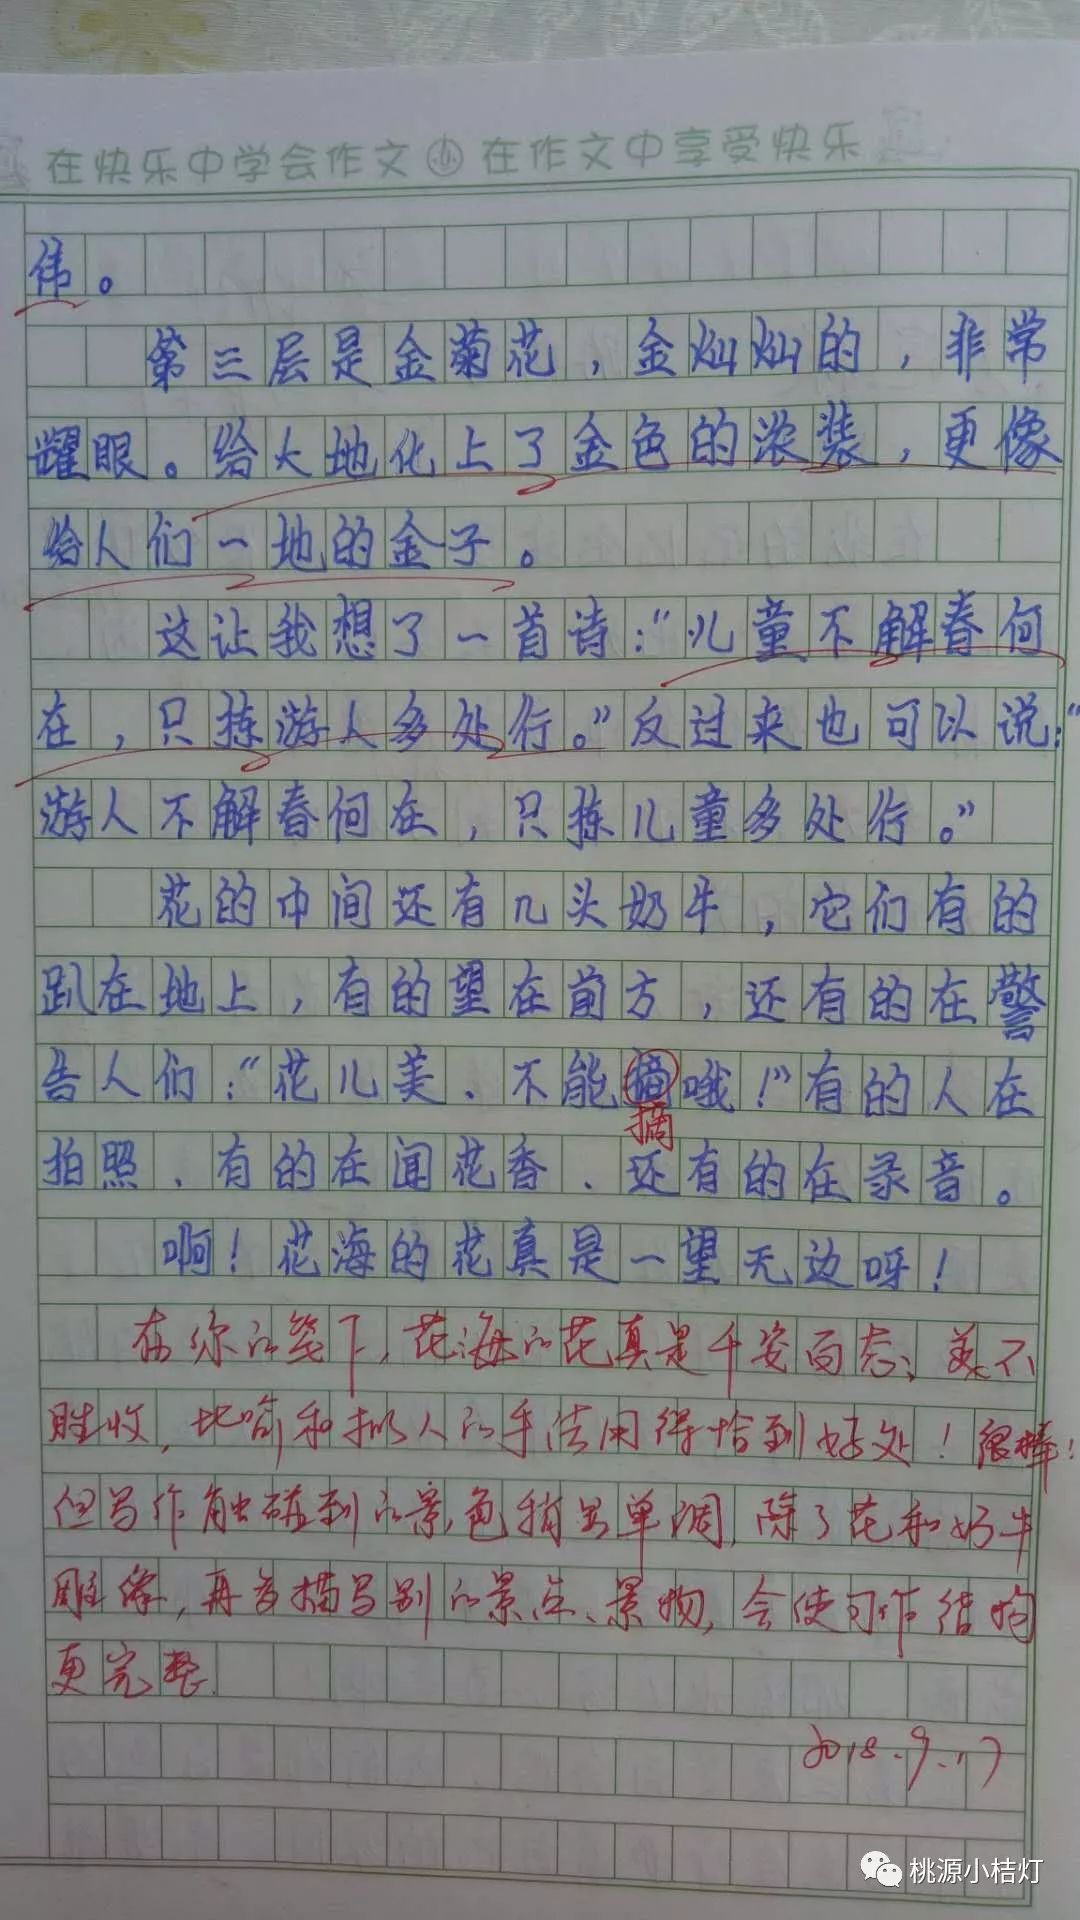 在快乐中学会作文 在作文中享受快乐
伟。
第三层是金菊花，金灿灿的，非常
耀眼。给大地化上了金色的浓装，更像
给人们一地的金子。
这让我想了一首诗：“儿童不解春何
在，只拣游人多处行。”反过来也可以说：“
游人不解春何在，只拣儿童多处行。”
花的中间还有几头奶牛，它们有的
趴在地上，有的望在前方，还有的在警
告人们：“花儿美、不能摘哦！”有的人在
摘
拍照、有的在闻花香、还有的在录音。
啊！花海的花真是一望无边呀！
在你的笔下，花海的花真是千姿百态，美不
胜收，比喻和拟人的手法用得恰到好处！很棒！
但写作触碰到的景色稍显单调，除了花和奶牛
雕像，再多描写别的景点、景物，会使习作结构
更完整.
2018.9.17
桃源小桔灯